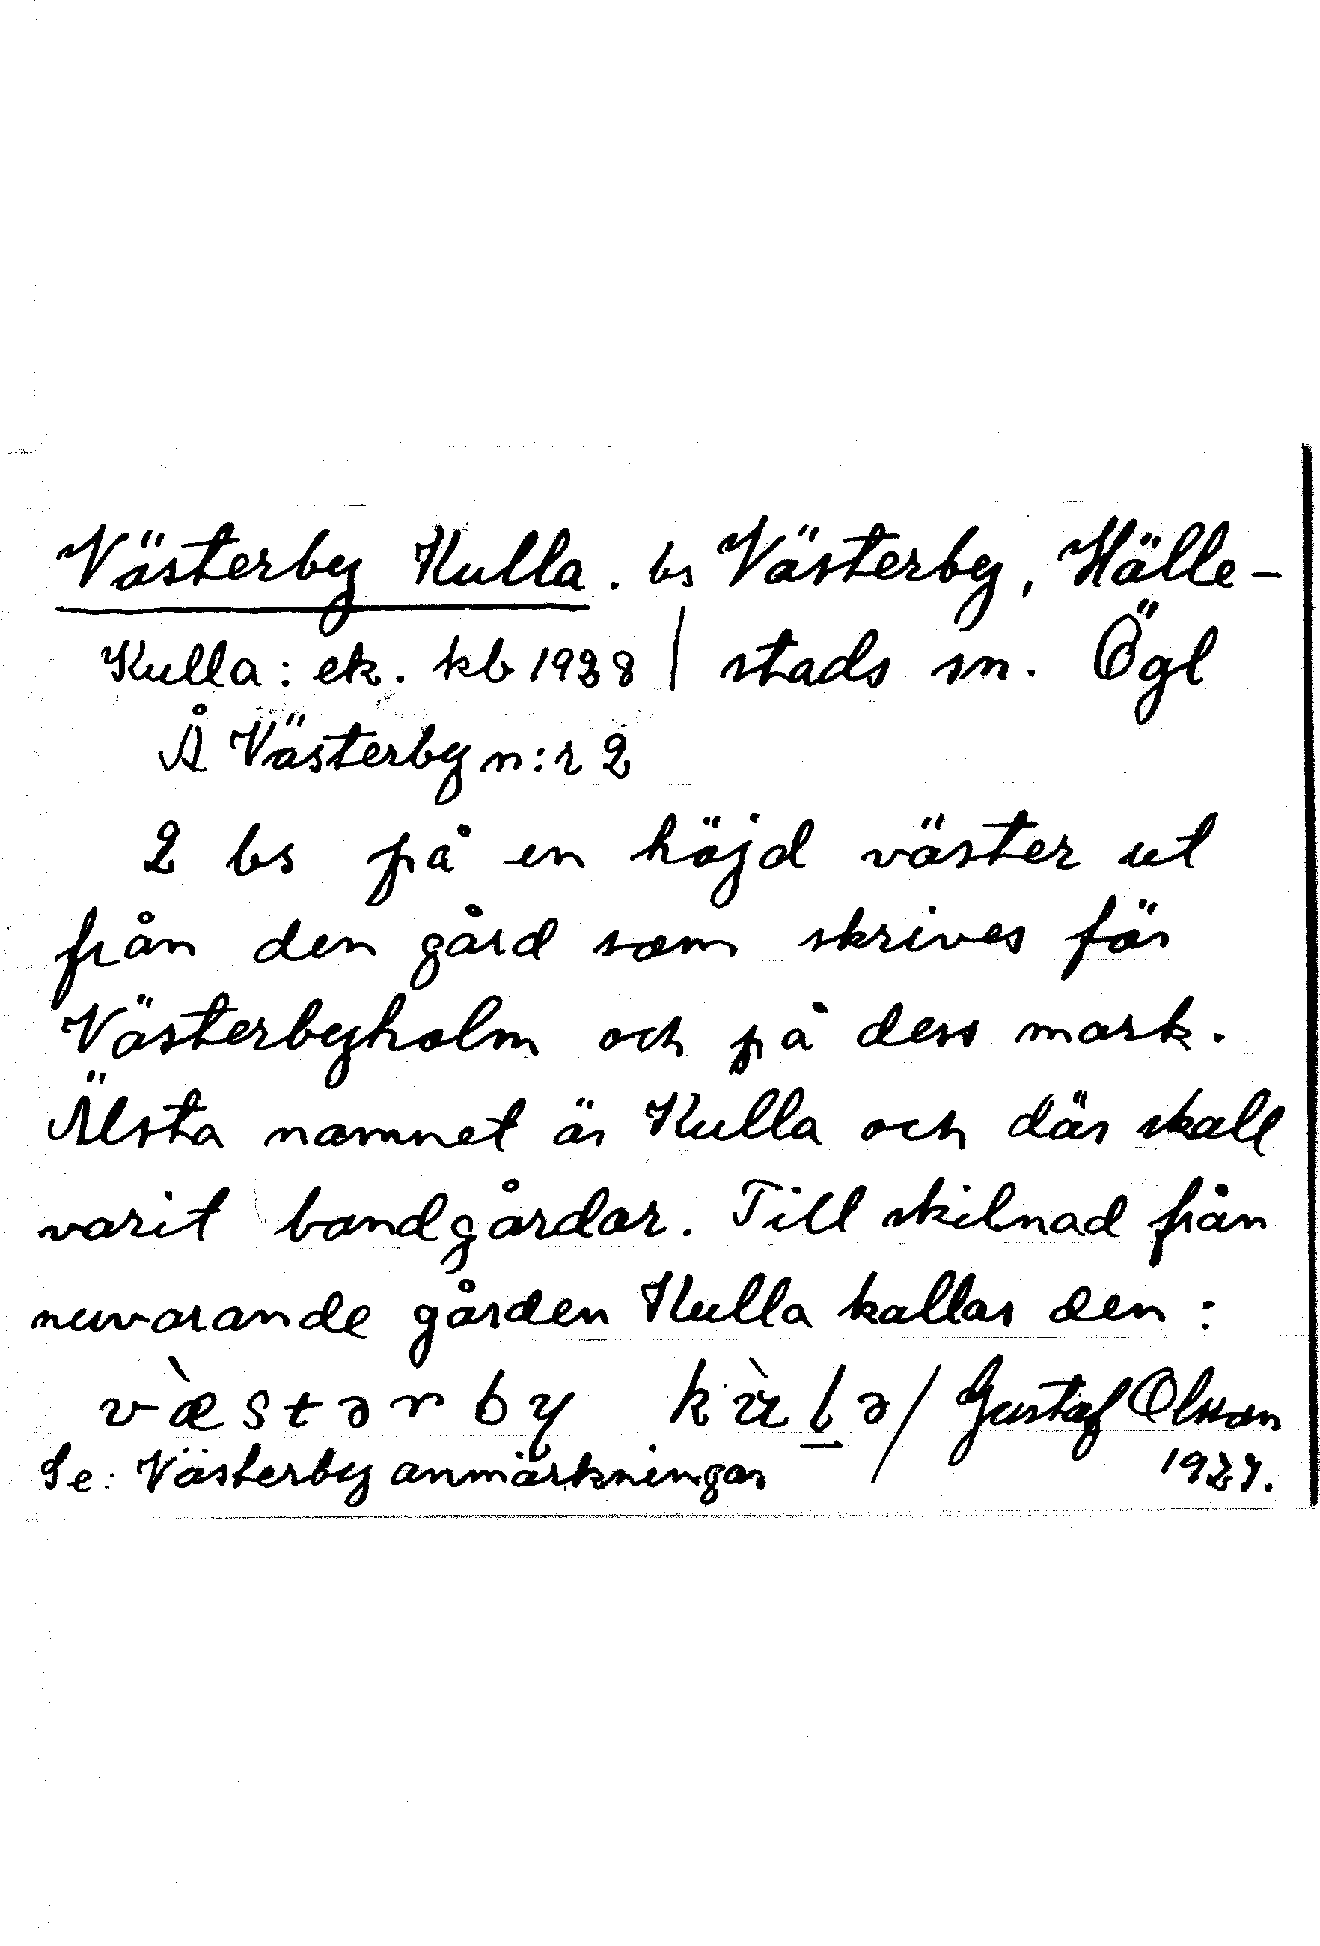 Västerby Kulla. bs Västerby, Hälle-
Kulla: ek. kb 1928 | stads sn. Ögl
Å Västerby n:r 2
2 bs på en höjd väster ut
från den gård som skrives för
Västerbyholm och på dess mark.
Älsta namnet är Kulla och där skall
varit bandgårdar. Till skilnad från
nuvarande gården Kulla kallas den:
væ̀stərby kùlə / Gustaf Olsson
Se: Västerby anmärkningar 1927.